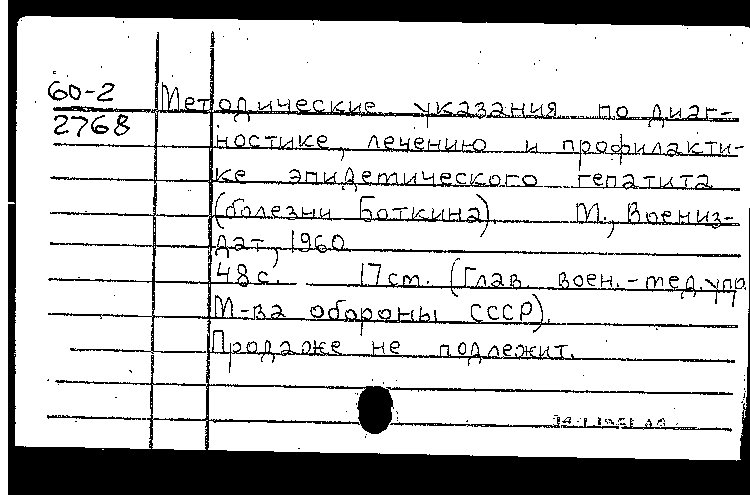 60-2
2768
Методические указания по диаг-
ностике, лечению и профилакти-
ке эпидемического гепатита
(болезни Боткина). М., Воениз-
дат, 1960
48 с. 17 см. (Глав. воен.-мед. упр.
М-ва обороны СССР).
Продаже не подлежит.